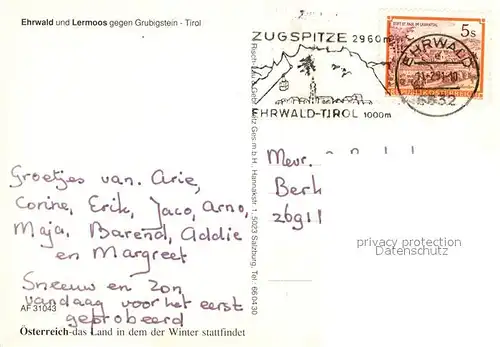 Ehrwald und Lermoos gegen Grubigstein - Tirol
ZUGSPITZE 2960m
EHRWALD-TIROL 1000m
STIFT ST. PAUL IM LAVANTTAL
5s
EHRWALD
6632
Groetjes van. Arie,
Corine, Erik, Jaco, Arno,
Maja, Barend, Addie
en Margreet
Sneeuw en zon
vandaag voor het eerst
geprobeerd
AF 31043
Österreich-das Land in dem der Winter stattfindet
Ges.m.b.H., Hannakstr. 1, 5023 Salzburg, Tel. 660430
Mevr.
Berk
269 11
privacy protection
Datenschutz